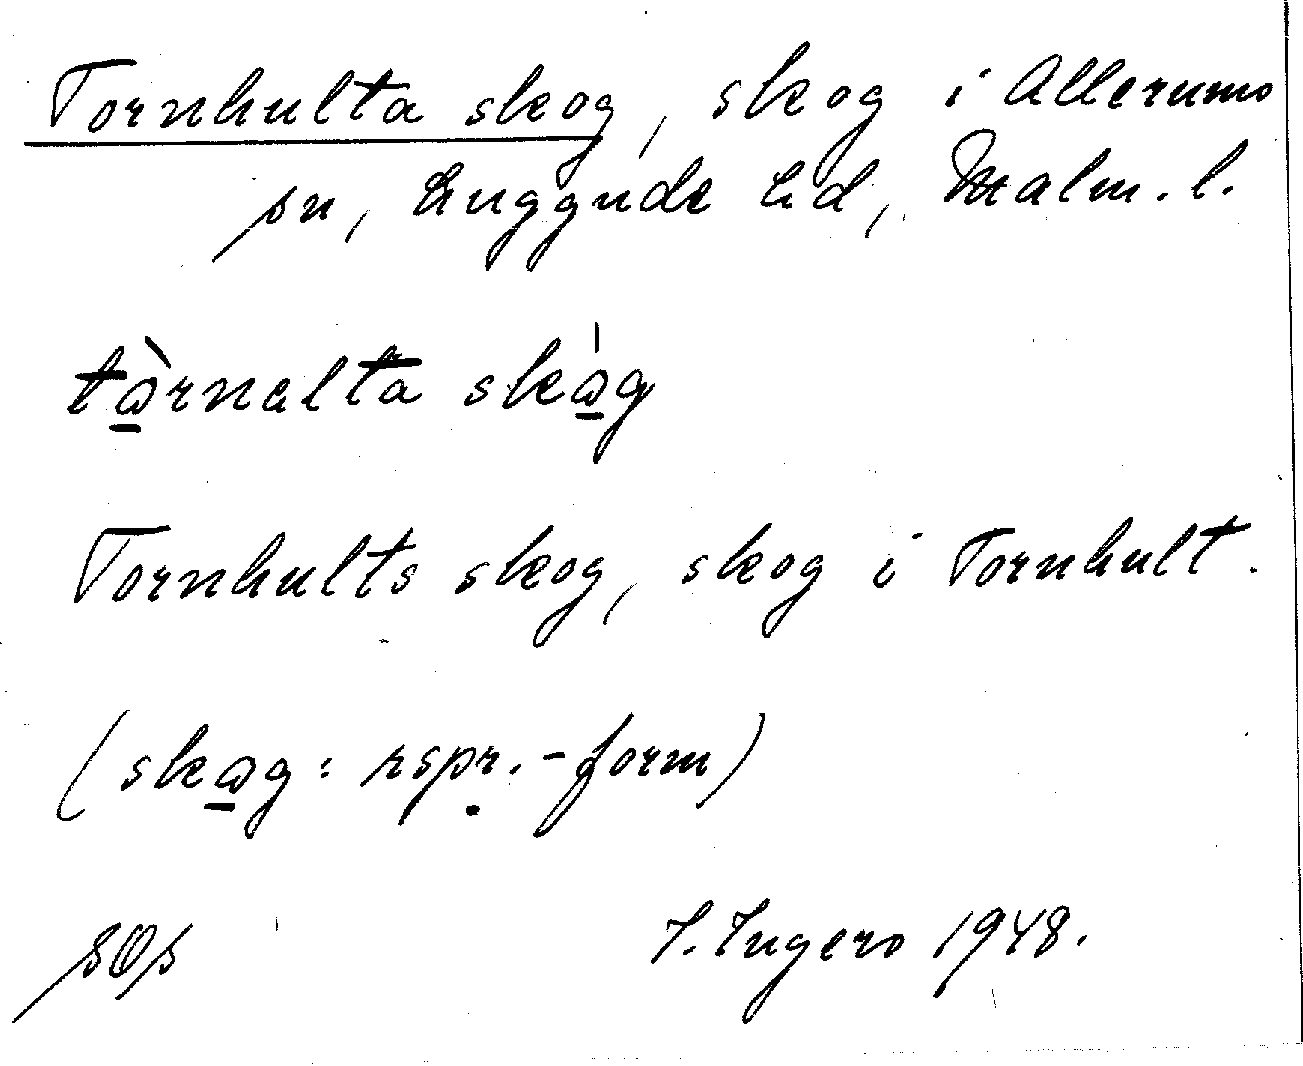 Tornhulta skog, skog i Allerums
sn, Luggude hd, Malm. l.
tàrnalta skåg
Tornhults skog, skog i Tornhult.
(skåg: rspr.-form)
SOS I. Ingers 1948.